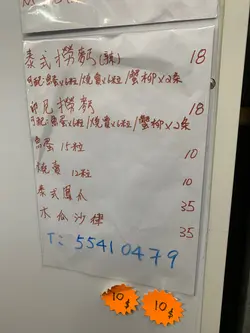 泰式撈麵(辣) 18
可配:魚蛋x6粒/燒賣x6粒/蟹柳x2条
即見撈麵 18
可配:魚蛋x6粒/燒賣x6粒/蟹柳x2条
魚蛋 15粒 10
燒賣 12粒 10
泰式鳳爪 35
木瓜沙律 35
T: 55410479
10$
10$